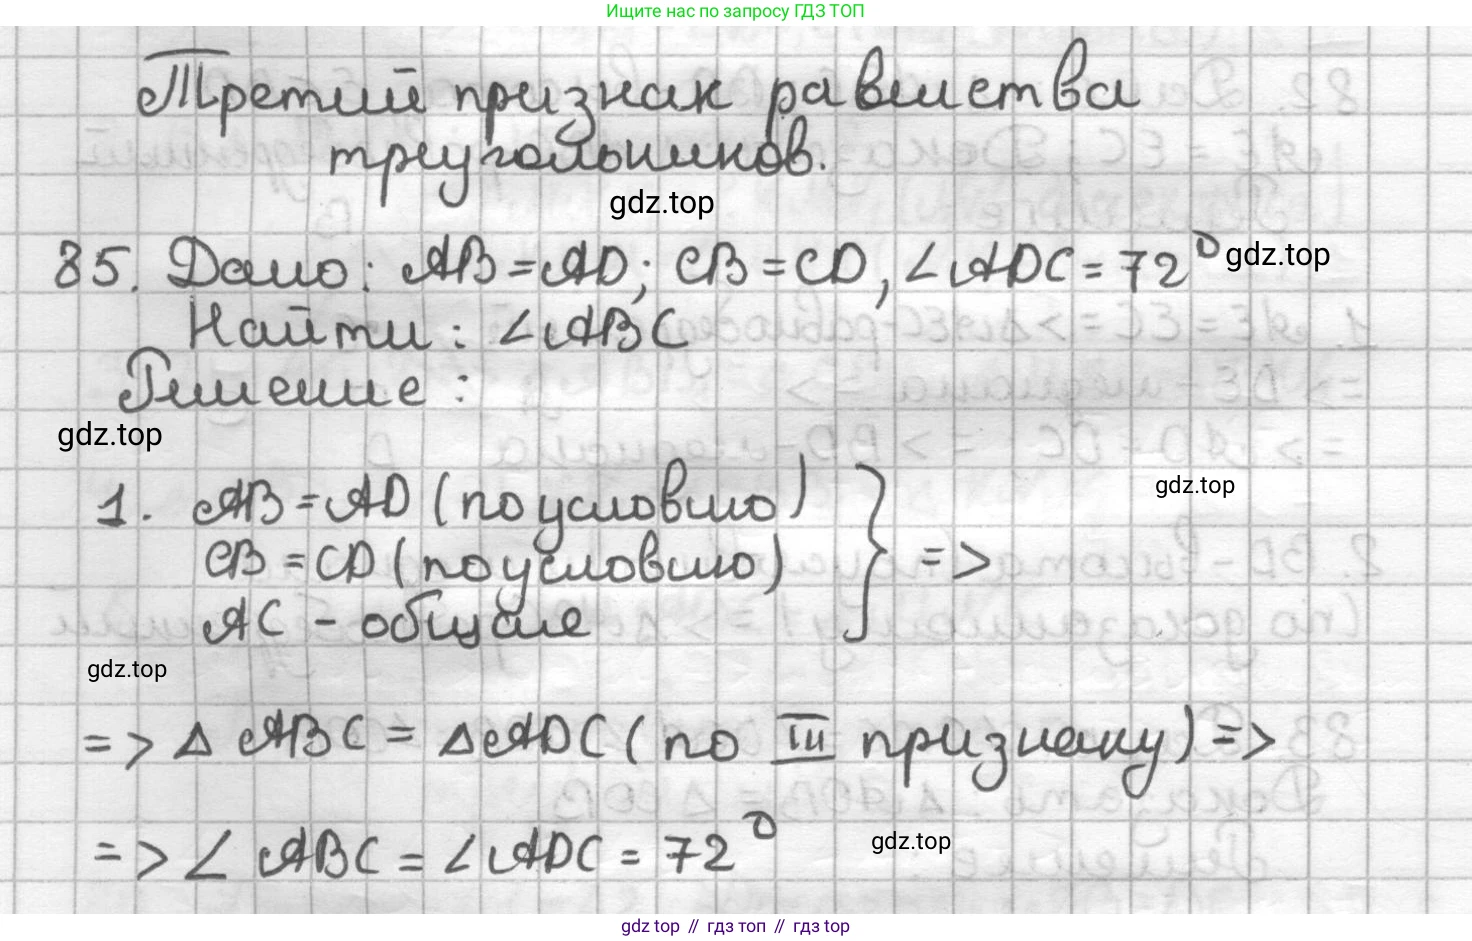 Ищите нас по запросу ГДЗ ТОП
Третий признак равенства
треугольников.
gdz.top
85. Дано: AB = AD; CB = CD, ∠ADC = 72° gdz.top
Найти: ∠ABC
Решение:
gdz.top
1. AB = AD (по условию)
gdz.top
CB = CD (по условию) } =>
AC - общая
gdz.top
=> Δ ABC = ΔADC (по III признаку) =>
=> ∠ ABC = ∠ADC = 72°
gdz.top
gdz top // гдз топ // гдз top